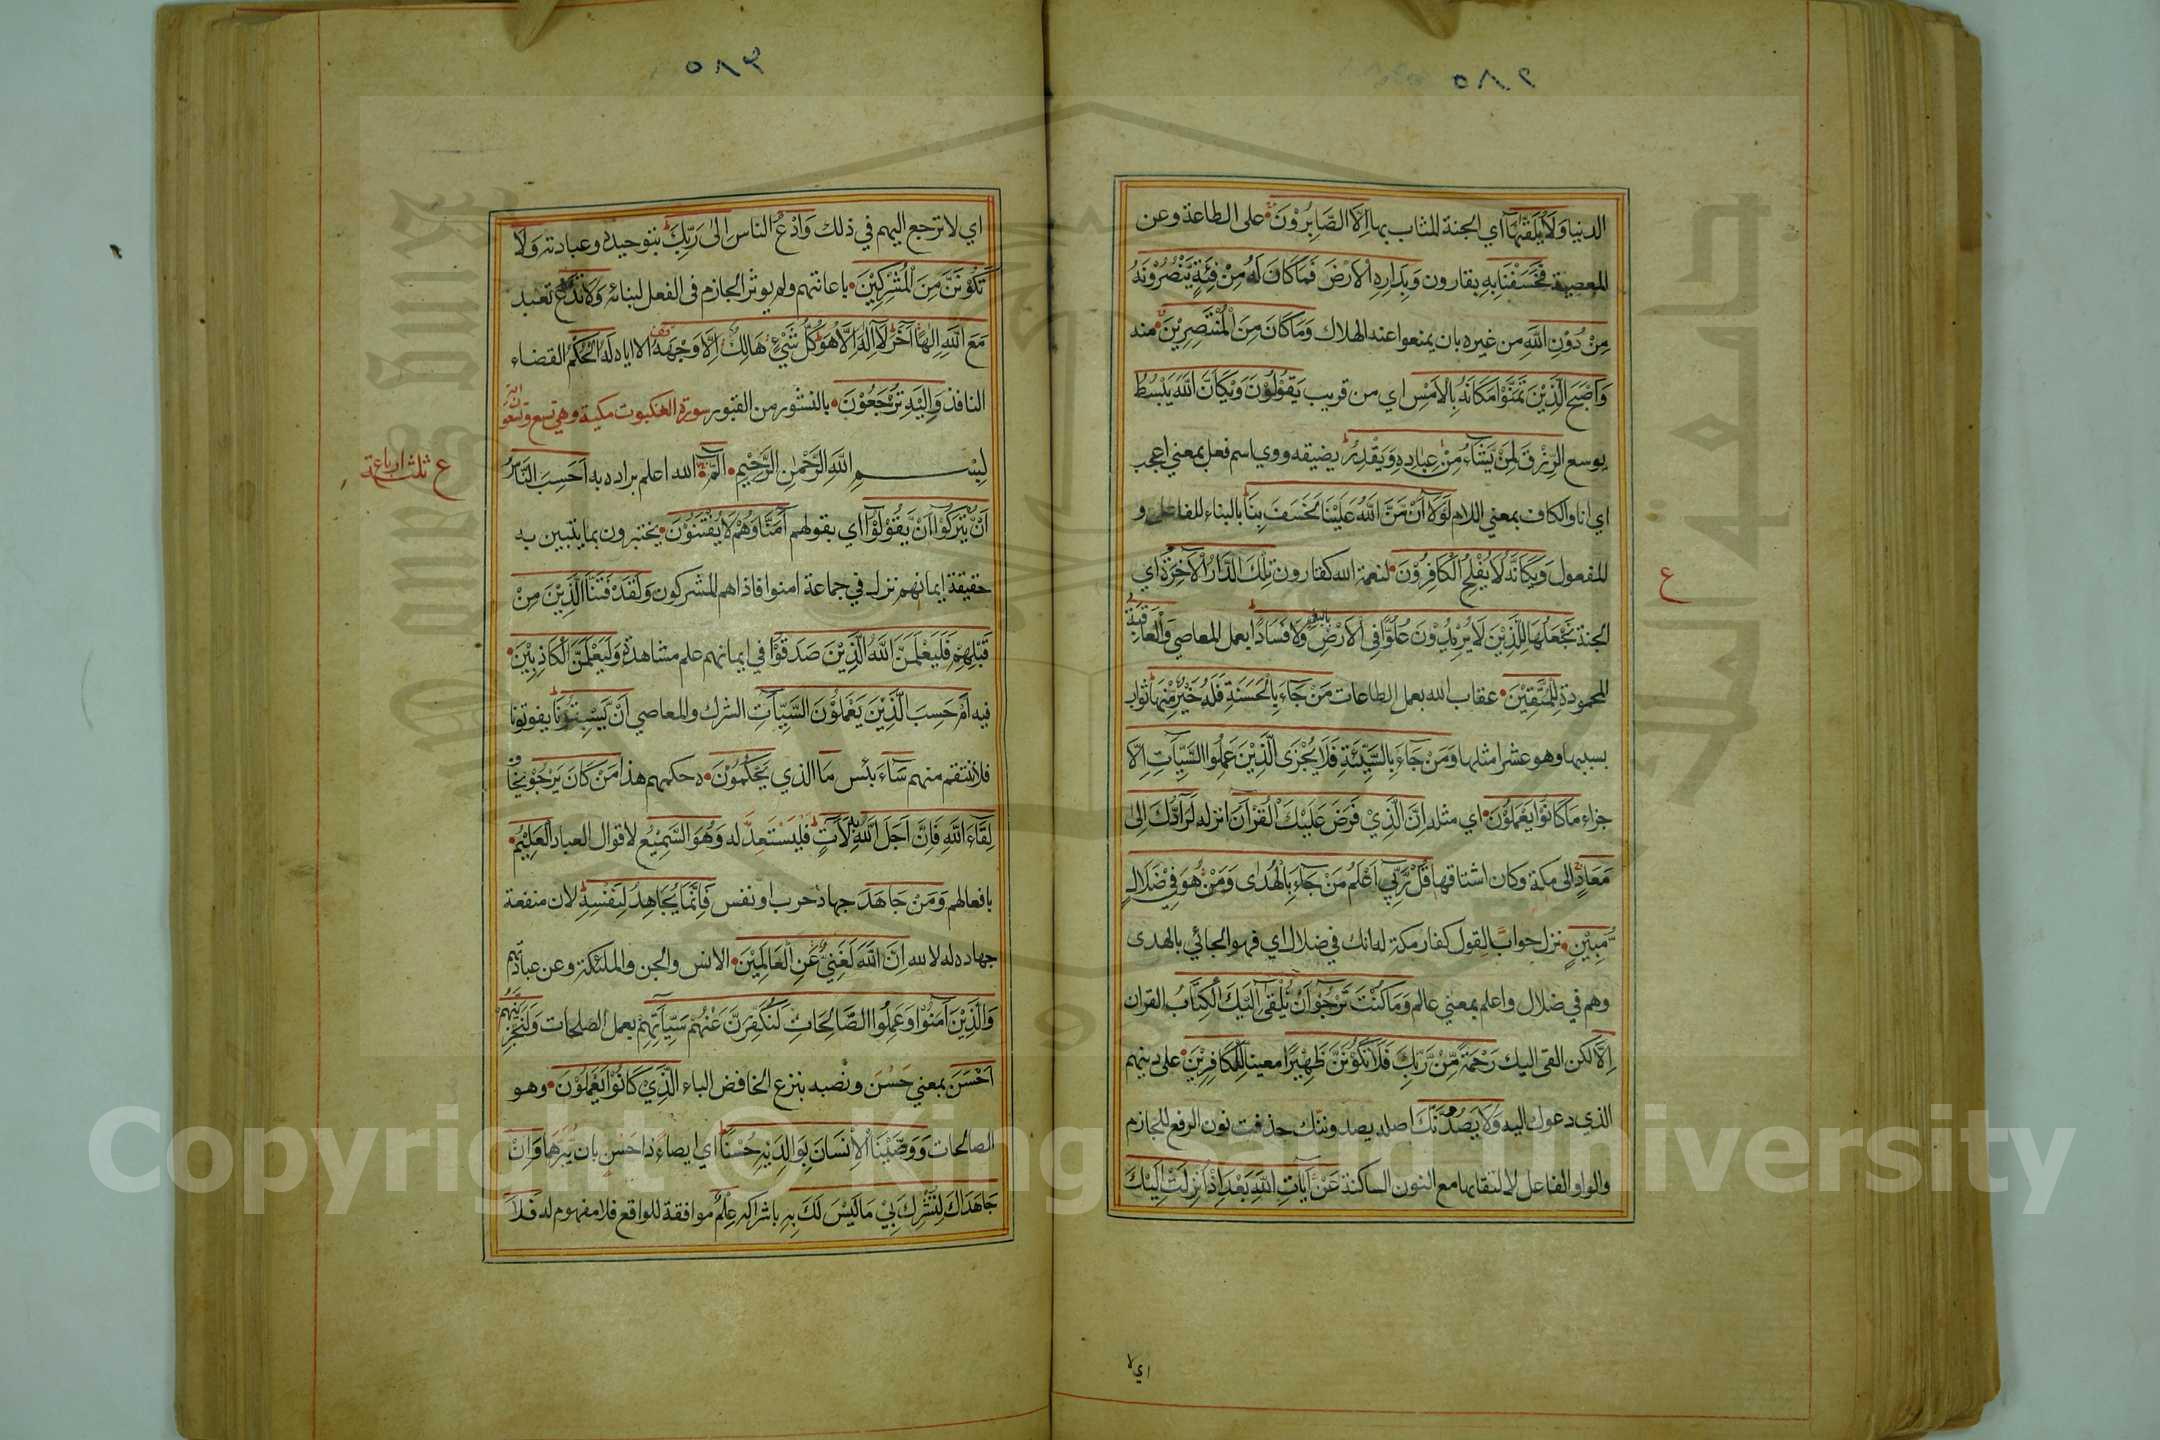 ٩٨٥
الدنيا وَلَا يُلَقّٰهَا اي الجنة المثاب بها اِلَّا الصَّابِرُوْنَ على الطاعة وعن
المعصية فَخَسَفْنَا بِهِ بقارون وَبِدَارِهِ الْاَرْضَ فَمَا كَانَ لَهُ مِنْ فِئَةٍ يَّنْصُرُوْنَهُ
مِنْ دُوْنِ اللّٰهِ من غيره بان يمنعوا عند الهلاك وَمَا كَانَ مِنَ الْمُنْتَصِرِيْنَ منه
وَاَصْبَحَ الَّذِيْنَ تَمَنَّوْا مَكَانَهُ بِالْاَمْسِ اي من قريب يَقُوْلُوْنَ وَيْكَاَنَّ اللّٰهَ يَبْسُطُ
يوسع الرِّزْقَ لِمَنْ يَشَاءُ مِنْ عِبَادِهِ وَيَقْدِرُ يضيقه ووي اسم فعل بمعني اعجب
اي انا والكاف بمعني اللام لَوْلَا اَنْ مَّنَّ اللّٰهُ عَلَيْنَا لَخَسَفَ بِنَا بالبناء للفاعل و
المفعول وَيْكَاَنَّهُ لَا يُفْلِحُ الْكَافِرُوْنَ لنعمة الله كقارون تِلْكَ الدَّارُ الْاٰخِرَةُ اي
الجنة نَجْعَلُهَا لِلَّذِيْنَ لَا يُرِيْدُوْنَ عُلُوًّا فِي الْاَرْضِ بالبغي وَلَا فَسَادًا بعمل المعاصي وَالْعَاقِبَةُ
المحمودة لِلْمُتَّقِيْنَ عقاب الله بعمل الطاعات مَنْ جَاءَ بِالْحَسَنَةِ فَلَهُ خَيْرٌ مِّنْهَا ثواب
بسببها وهو عشر امثلها وَمَنْ جَاءَ بِالسَّيِّئَةِ فَلَا يُجْزَى الَّذِيْنَ عَمِلُوا السَّيِّاٰتِ اِلَّا
جزاء مَا كَانُوْا يَعْمَلُوْنَ اي مثله اِنَّ الَّذِيْ فَرَضَ عَلَيْكَ الْقُرْاٰنَ انزله لَرَادُّكَ اِلٰى
مَعَادٍ الى مكة وكان اشتاقها قُلْ رَّبِّيْ اَعْلَمُ مَنْ جَاءَ بِالْهُدٰى وَمَنْ هُوَ فِيْ ضَلَالٍ
مُّبِيْنٍ نزل جوابا لقول كفار مكة له انك في ضلال اي فهو الجائي بالهدى
وهم في ضلال واعلم بمعني عالم وَمَا كُنْتَ تَرْجُوْا اَنْ يُّلْقٰى اِلَيْكَ الْكِتَابُ القران
اِلَّا لكن القى اليك رَحْمَةً مِّنْ رَّبِّكَ فَلَا تَكُوْنَنَّ ظَهِيْرًا معينا لِّلْكَافِرِيْنَ على دينهم
الذي دعوك اليه وَلَا يَصُدُّنَّكَ اصله يصدوننك حذفت نون الرفع للجازم
والواو الفاعل لالتقايها مع النون الساكنة عَنْ اٰيَاتِ اللّٰهِ بَعْدَ اِذْ اُنْزِلَتْ اِلَيْكَ
ع
اي لا
٩٨٥
اي لا ترجع اليهم في ذلك وَادْعُ الناس اِلٰى رَبِّكَ بتوحيده وعبادته وَلَا
تَكُوْنَنَّ مِنَ الْمُشْرِكِيْنَ باعانتهم ولم يوثر الجازم فى الفعل لبنائه وَلَا تَدْعُ تعبد
مَعَ اللّٰهِ اِلٰهًا اٰخَرَ لَا اِلٰهَ اِلَّا هُوَ كُلُّ شَيْءٍ هَالِكٌ اِلَّا وَجْهَهُ الا اياه لَهُ الْحُكْمُ القضاء
النافذ وَاِلَيْهِ تُرْجَعُوْنَ بالنشور من القبور سورة العنكبوت مكية وهي تسع وتسعون اية
بِسْمِ اللّٰهِ الرَّحْمٰنِ الرَّحِيْمِ الٓمّٓ الله اعلم براده به اَحَسِبَ النَّاسُ
اَنْ يُّتْرَكُوْا اَنْ يَّقُوْلُوْا اي بقولهم اٰمَنَّا وَهُمْ لَا يُفْتَنُوْنَ يختبرون بما يتبين به
حقيقة ايمانهم نزل في جماعة امنوا فاذاهم المشركون وَلَقَدْ فَتَنَّا الَّذِيْنَ مِنْ
قَبْلِهِمْ فَلَيَعْلَمَنَّ اللّٰهُ الَّذِيْنَ صَدَقُوْا في ايمانهم علم مشاهدة وَلَيَعْلَمَنَّ الْكَاذِبِيْنَ
فيه اَمْ حَسِبَ الَّذِيْنَ يَعْمَلُوْنَ السَّيِّاٰتِ الشرك والمعاصي اَنْ يَّسْبِقُوْنَا يفوتونا
فلا ننتقم منهم سَاءَ بئس مَا الذي يَحْكُمُوْنَ ه حكمهم هذا مَنْ كَانَ يَرْجُوْ يخاف
لِقَاءَ اللّٰهِ فَاِنَّ اَجَلَ اللّٰهِ به لَاٰتٍ فليستعد له وَهُوَ السَّمِيْعُ لاقوال العباد الْعَلِيْمُ
بافعالهم وَمَنْ جَاهَدَ جهاد حرب او نفس فَاِنَّمَا يُجَاهِدُ لِنَفْسِهِ لان منفعة
جهاده له لا لله اِنَّ اللّٰهَ لَغَنِيٌّ عَنِ الْعَالَمِيْنَ الانس والجن والملئكة وعن عبادتهم
وَالَّذِيْنَ اٰمَنُوْا وَعَمِلُوا الصَّالِحَاتِ لَنُكَفِّرَنَّ عَنْهُمْ سَيِّاٰتِهِمْ بعمل الصلحات وَلَنَجْزِيَنَّهُمْ
اَحْسَنَ بمعني حَسَنَ ونصبه بنزع الخافض الباء الَّذِيْ كَانُوْا يَعْمَلُوْنَ وهو
الصالحات وَوَصَّيْنَا الْاِنْسَانَ بِوَالِدَيْهِ حُسْنًا اي ايصاء ذا حسن بان يبرهما وَاِنْ
جَاهَدَاكَ لِتُشْرِكَ بِيْ مَا لَيْسَ لَكَ بِهِ باشراكه عِلْمٌ موافقة للواقع فلا مفهوم له فَلَا
ع ثلثة ارباع
Copyright © King Saud University